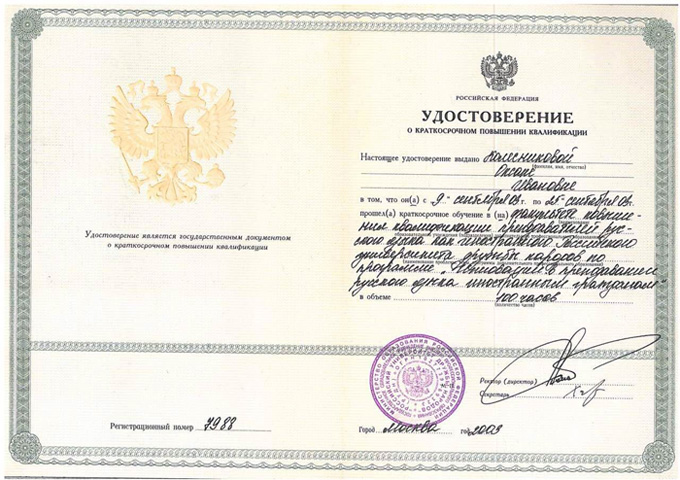 Удостоверение является государственным документом
о краткосрочном повышении квалификации
Регистрационный номер 7988
РОССИЙСКАЯ ФЕДЕРАЦИЯ
УДОСТОВЕРЕНИЕ
О КРАТКОСРОЧНОМ ПОВЫШЕНИИ КВАЛИФИКАЦИИ
Настоящее удостоверение выдано Колесниковой
(фамилия, имя, отчество)
Оксане
Ивановне
в том, что он(а) с 9 сентября 09г. по 25 сентября 09г.
прошел(а) краткосрочное обучение в (на) факультете повыше-
ния квалификации преподавателей рус-
ского языка как иностранного Российского
университета дружбы народов по
программе "Инновации в преподавании
русского языка иностранным гражданам"
в объеме 100 часов
(количество часов)
Ректор (директор)
Секретарь
Город Москва год 2009